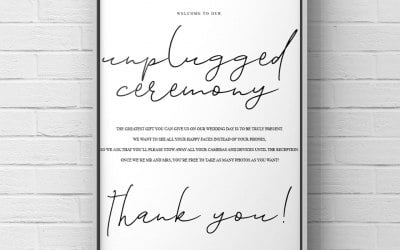 WELCOME TO OUR
unplugged
ceremony
THE GREATEST GIFT YOU CAN GIVE US ON OUR WEDDING DAY IS TO BE TRULY PRESENT.
WE WANT TO SEE ALL YOUR HAPPY FACES INSTEAD OF YOUR PHONES,
SO WE ASK THAT YOU'LL PLEASE STOW AWAY ALL YOUR CAMERAS AND DEVICES UNTIL THE RECEPTION.
ONCE WE'RE MR AND MRS, YOU'RE FREE TO TAKE AS MANY PHOTOS AS YOU WANT!
thank you!